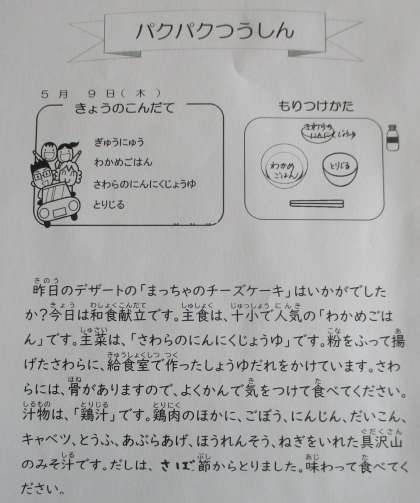 パクパクつうしん
5月 9日(木)
きょうのこんだて
ぎゅうにゅう
わかめごはん
さわらのにんにくじょうゆ
とりじる
もりつけかた
さわらの
にんにくじょうゆ
わかめ
ごはん
とりじる
昨日のデザートの「まっちゃのチーズケーキ」はいかがでした
か?今日は和食献立です。主食は、十小で人気の「わかめごは
ん」です。主菜は、「さわらのにんにくじょうゆ」です。粉をふって揚
げたさわらに、給食室で作ったしょうゆだれをかけています。さわ
らには、骨がありますので、よくかんで気をつけて食べてください。
汁物は、「鶏汁」です。鶏肉のほかに、ごぼう、にんじん、だいこん、
キャベツ、とうふ、あぶらあげ、ほうれんそう、ねぎをいれた具沢山
のみそ汁です。だしは、さば節からとりました。味わって食べてく
ださい。